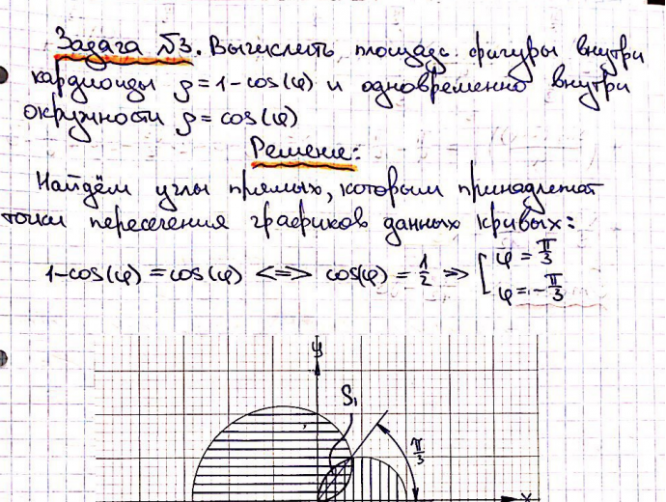 Задача №3. Вычислить площадь фигуры внутри
кардиоиды ρ = 1-cos(φ) и одновременно внутри
окружности ρ = cos(φ)
Решение:
Найдём углы прямых, которым принадлежат
точки пересечения графиков данных кривых:
1-cos(φ) = cos(φ) <=> cos(φ) = 1/2 => [ φ = π/3
φ = -π/3
y
S₁
π/3
x